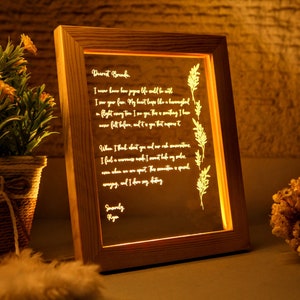 Dearest Brenda,
I never knew how joyous life could be until
I saw your face. My heart beats like a hummingbird
in flight every time I see you. This is something I have
never felt before, and it is you that inspires it.
When I think about you and our rich conversations,
I feel a nervousness inside I cannot help my smiles,
even when we are apart. This connection is special,
amazing, and I dare say, destiny.
Sincerely,
Ryan